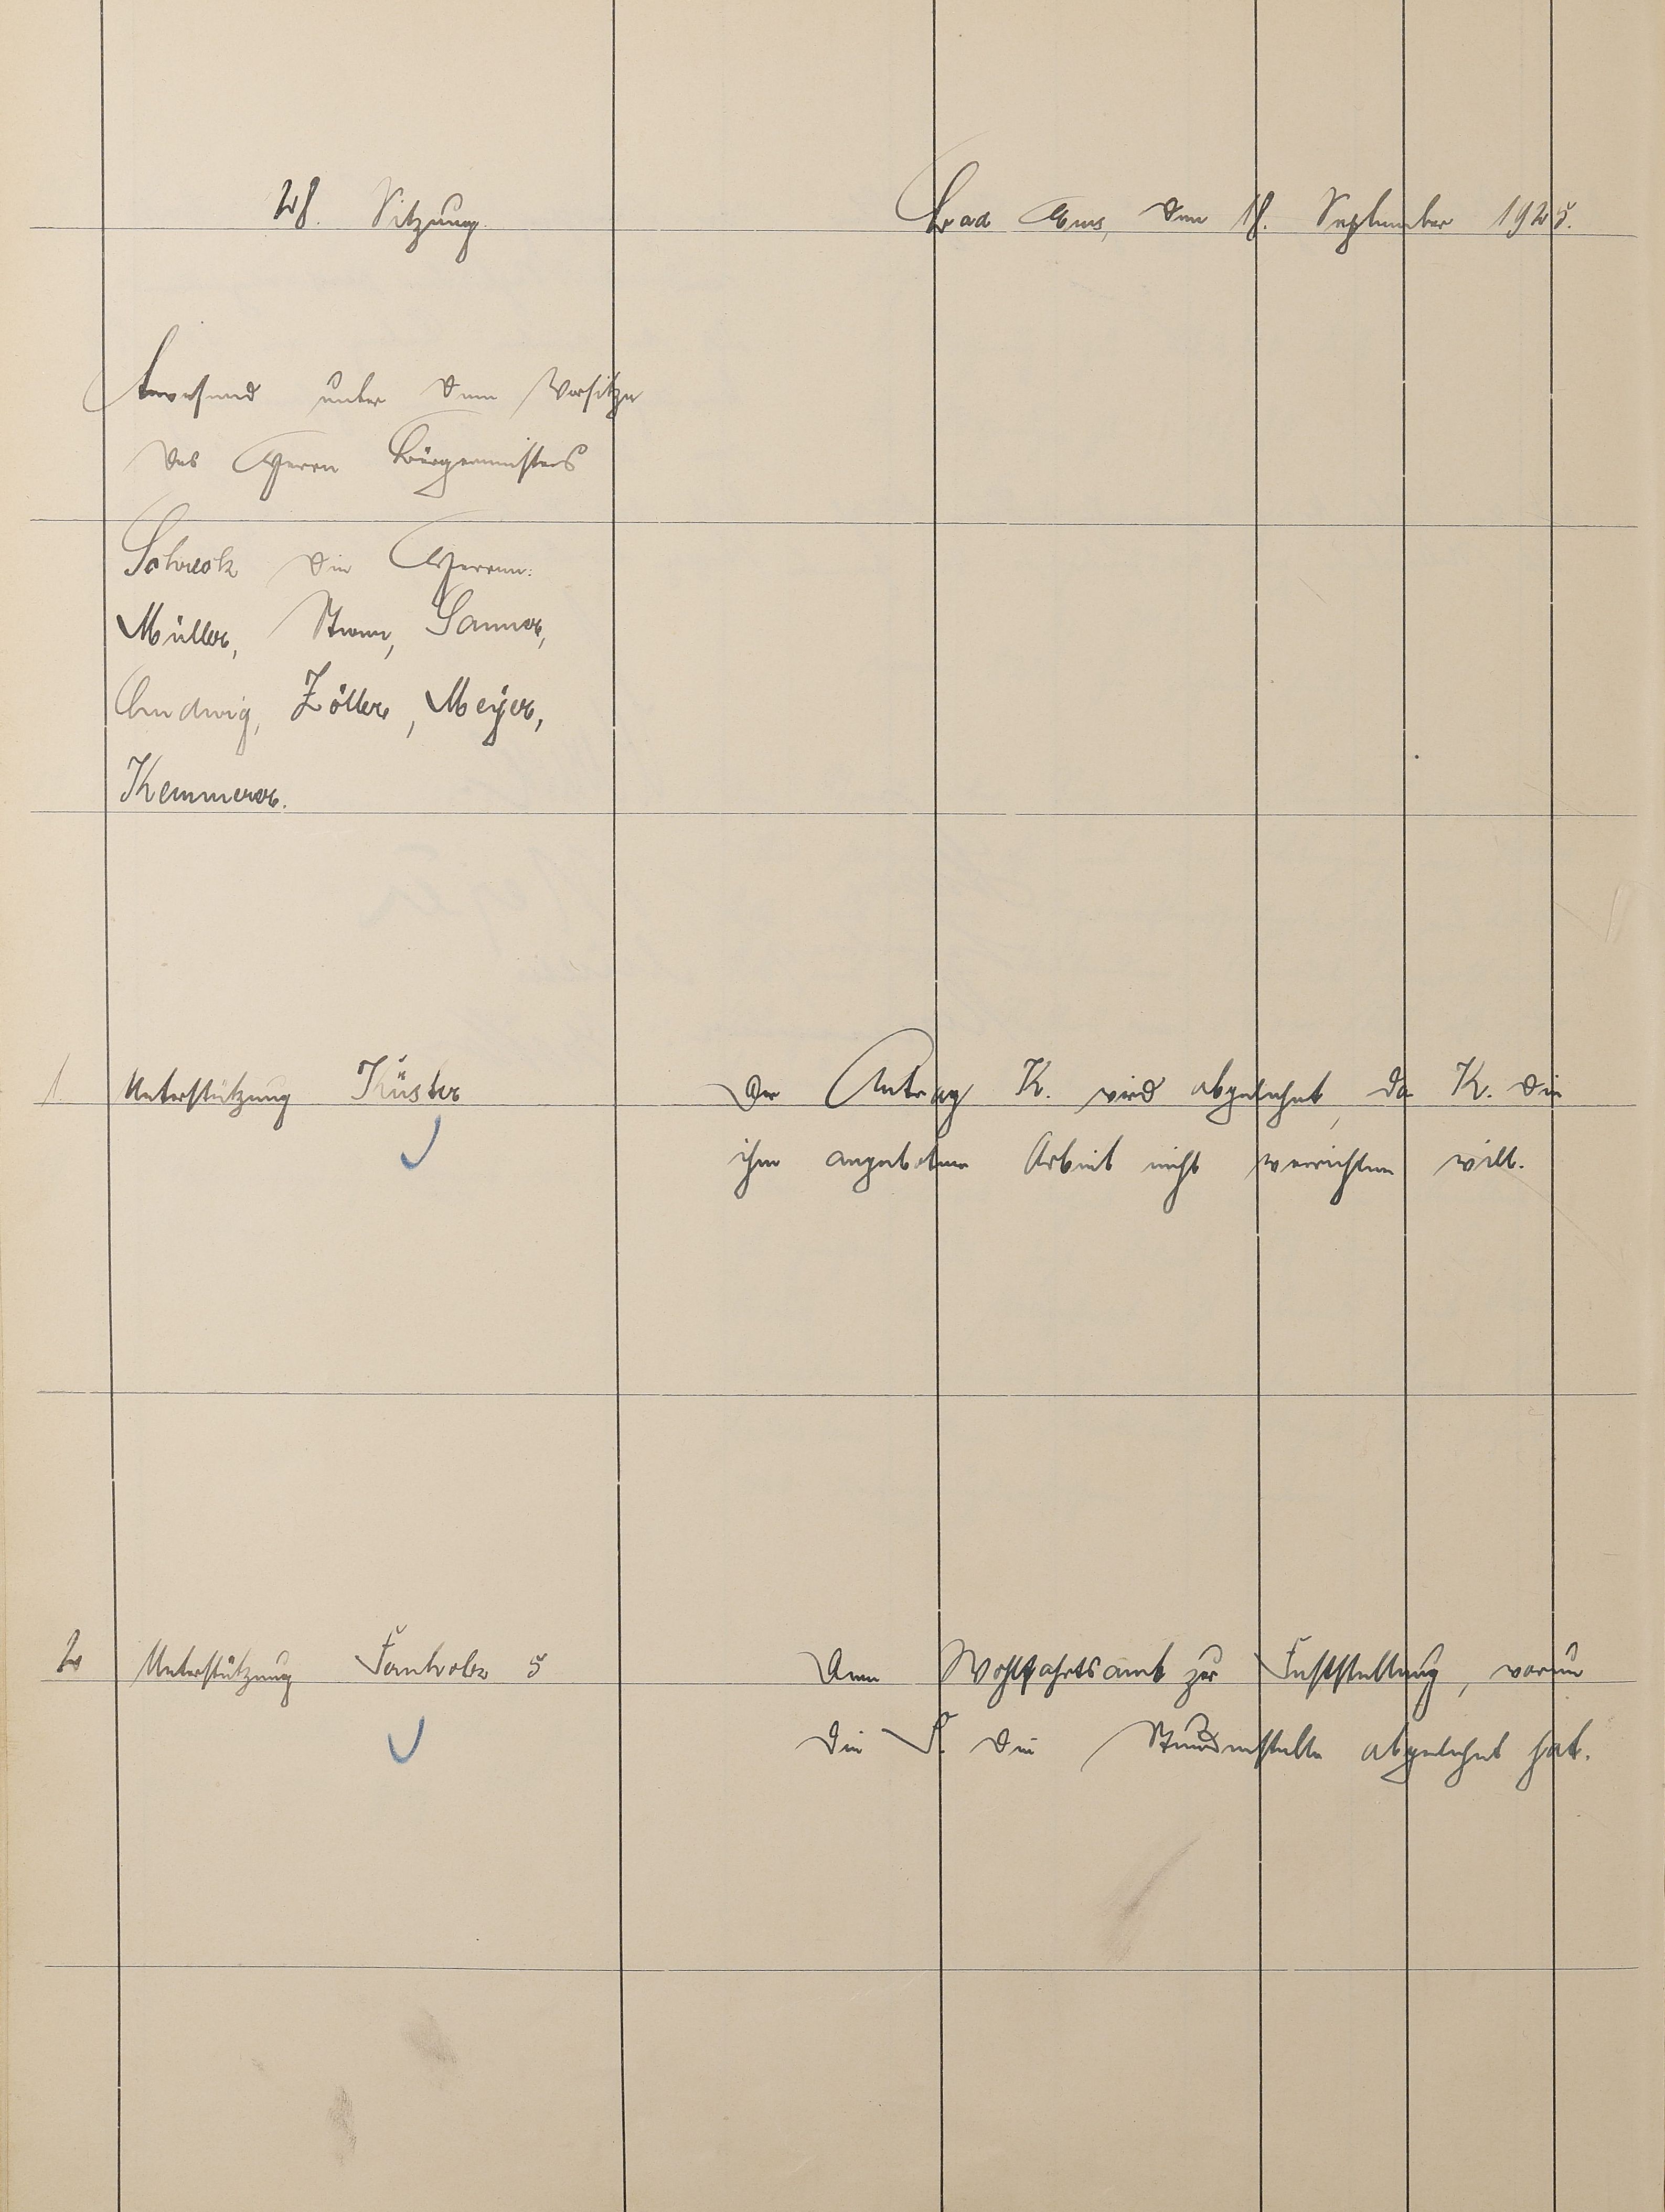 28. Sitzung.
Bad Ems, den 18. September 1925.
Anwesend unter dem Vorsitze
des Herrn Bürgermeisters
Schreck die Herren:
Müller, Sturm, Sanner,
Ludwig, Zöller, Meyer,
Kemmerer.
1. Unterstützung Küster
Der Antrag K. wird abgelehnt, da K. die
ihm angebotene Arbeit nicht verrichten will.
2 Unterstützung 5
Dem Wohlfahrtsamt zur Feststellung, warum
die F. die Stundenstelle abgelehnt hat.